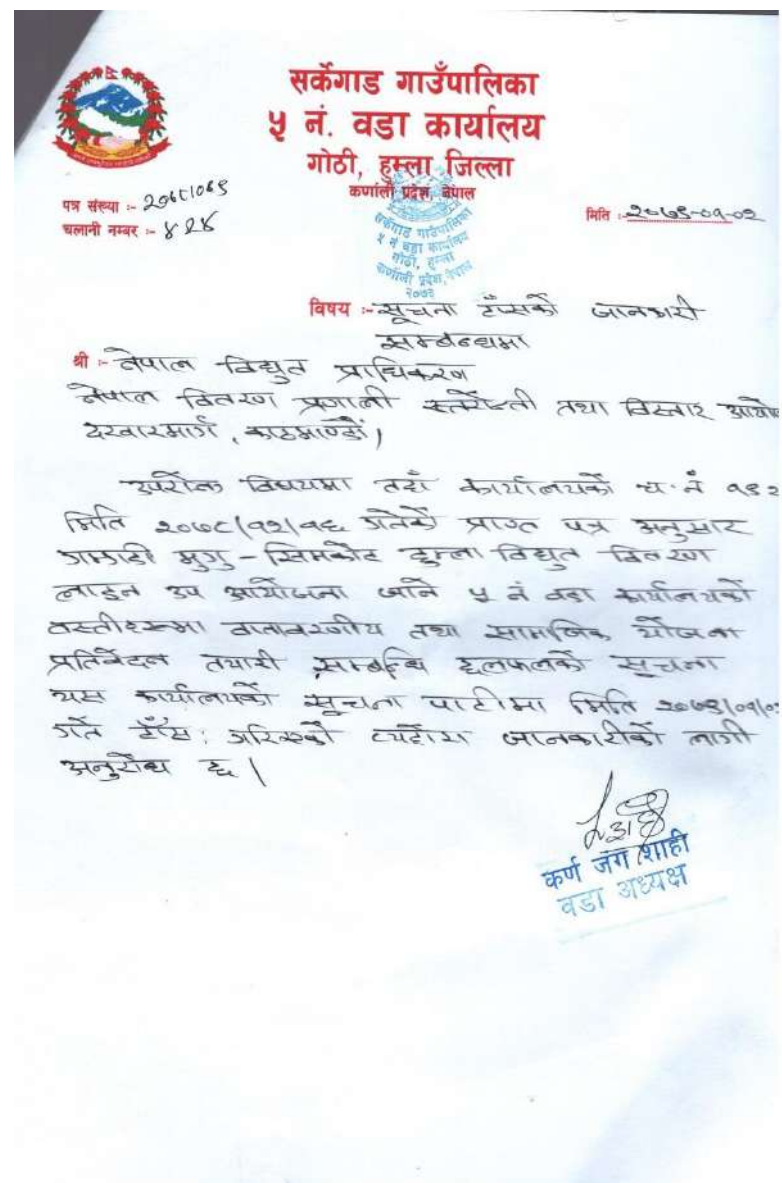 सर्केगाड गाउँपालिका
५ नं. वडा कार्यालय
गोठी, हुम्ला जिल्ला
कर्णाली प्रदेश, नेपाल
पत्र संख्या :- २०७८।०७९
चलानी नम्बर :- ४२४
मिति :- २०७९-०१-०२
सर्केगाड गाउँपालिका
५ नं वडा कार्यालय
गोठी, हुम्ला
कर्णाली प्रदेश, नेपाल
२०७३
विषय :- सूचना टाँसको जानकारी
सम्बन्धमा
श्री :- नेपाल विद्युत प्राधिकरण
नेपाल वितरण प्रणाली स्तरोन्नती तथा विस्तार आयो
दरवारमार्ग, काठमाण्डौं,
उपरोक्त विषयमा तहाँ कार्यालयको च.नं १९२
मिति २०७८/१२/१६ गतेको प्राप्त पत्र अनुसार
गामगढी मुगु - सिमकोट हुम्ला विद्युत वितरण
लाइन उप आयोजना जाने ५ नं वडा कार्यालयको
वस्तीहरूमा वातावरणीय तथा सामाजिक योजना
प्रतिवेदन तयारी सम्बन्धि छलफलको सूचना
यस कार्यालयको सूचना पाटीमा मिति २०७९/०१/०
गते टाँस गरिएको व्यहोरा जानकारीको लागी
अनुरोध छ |
कर्ण जंग शाही
वडा अध्यक्ष